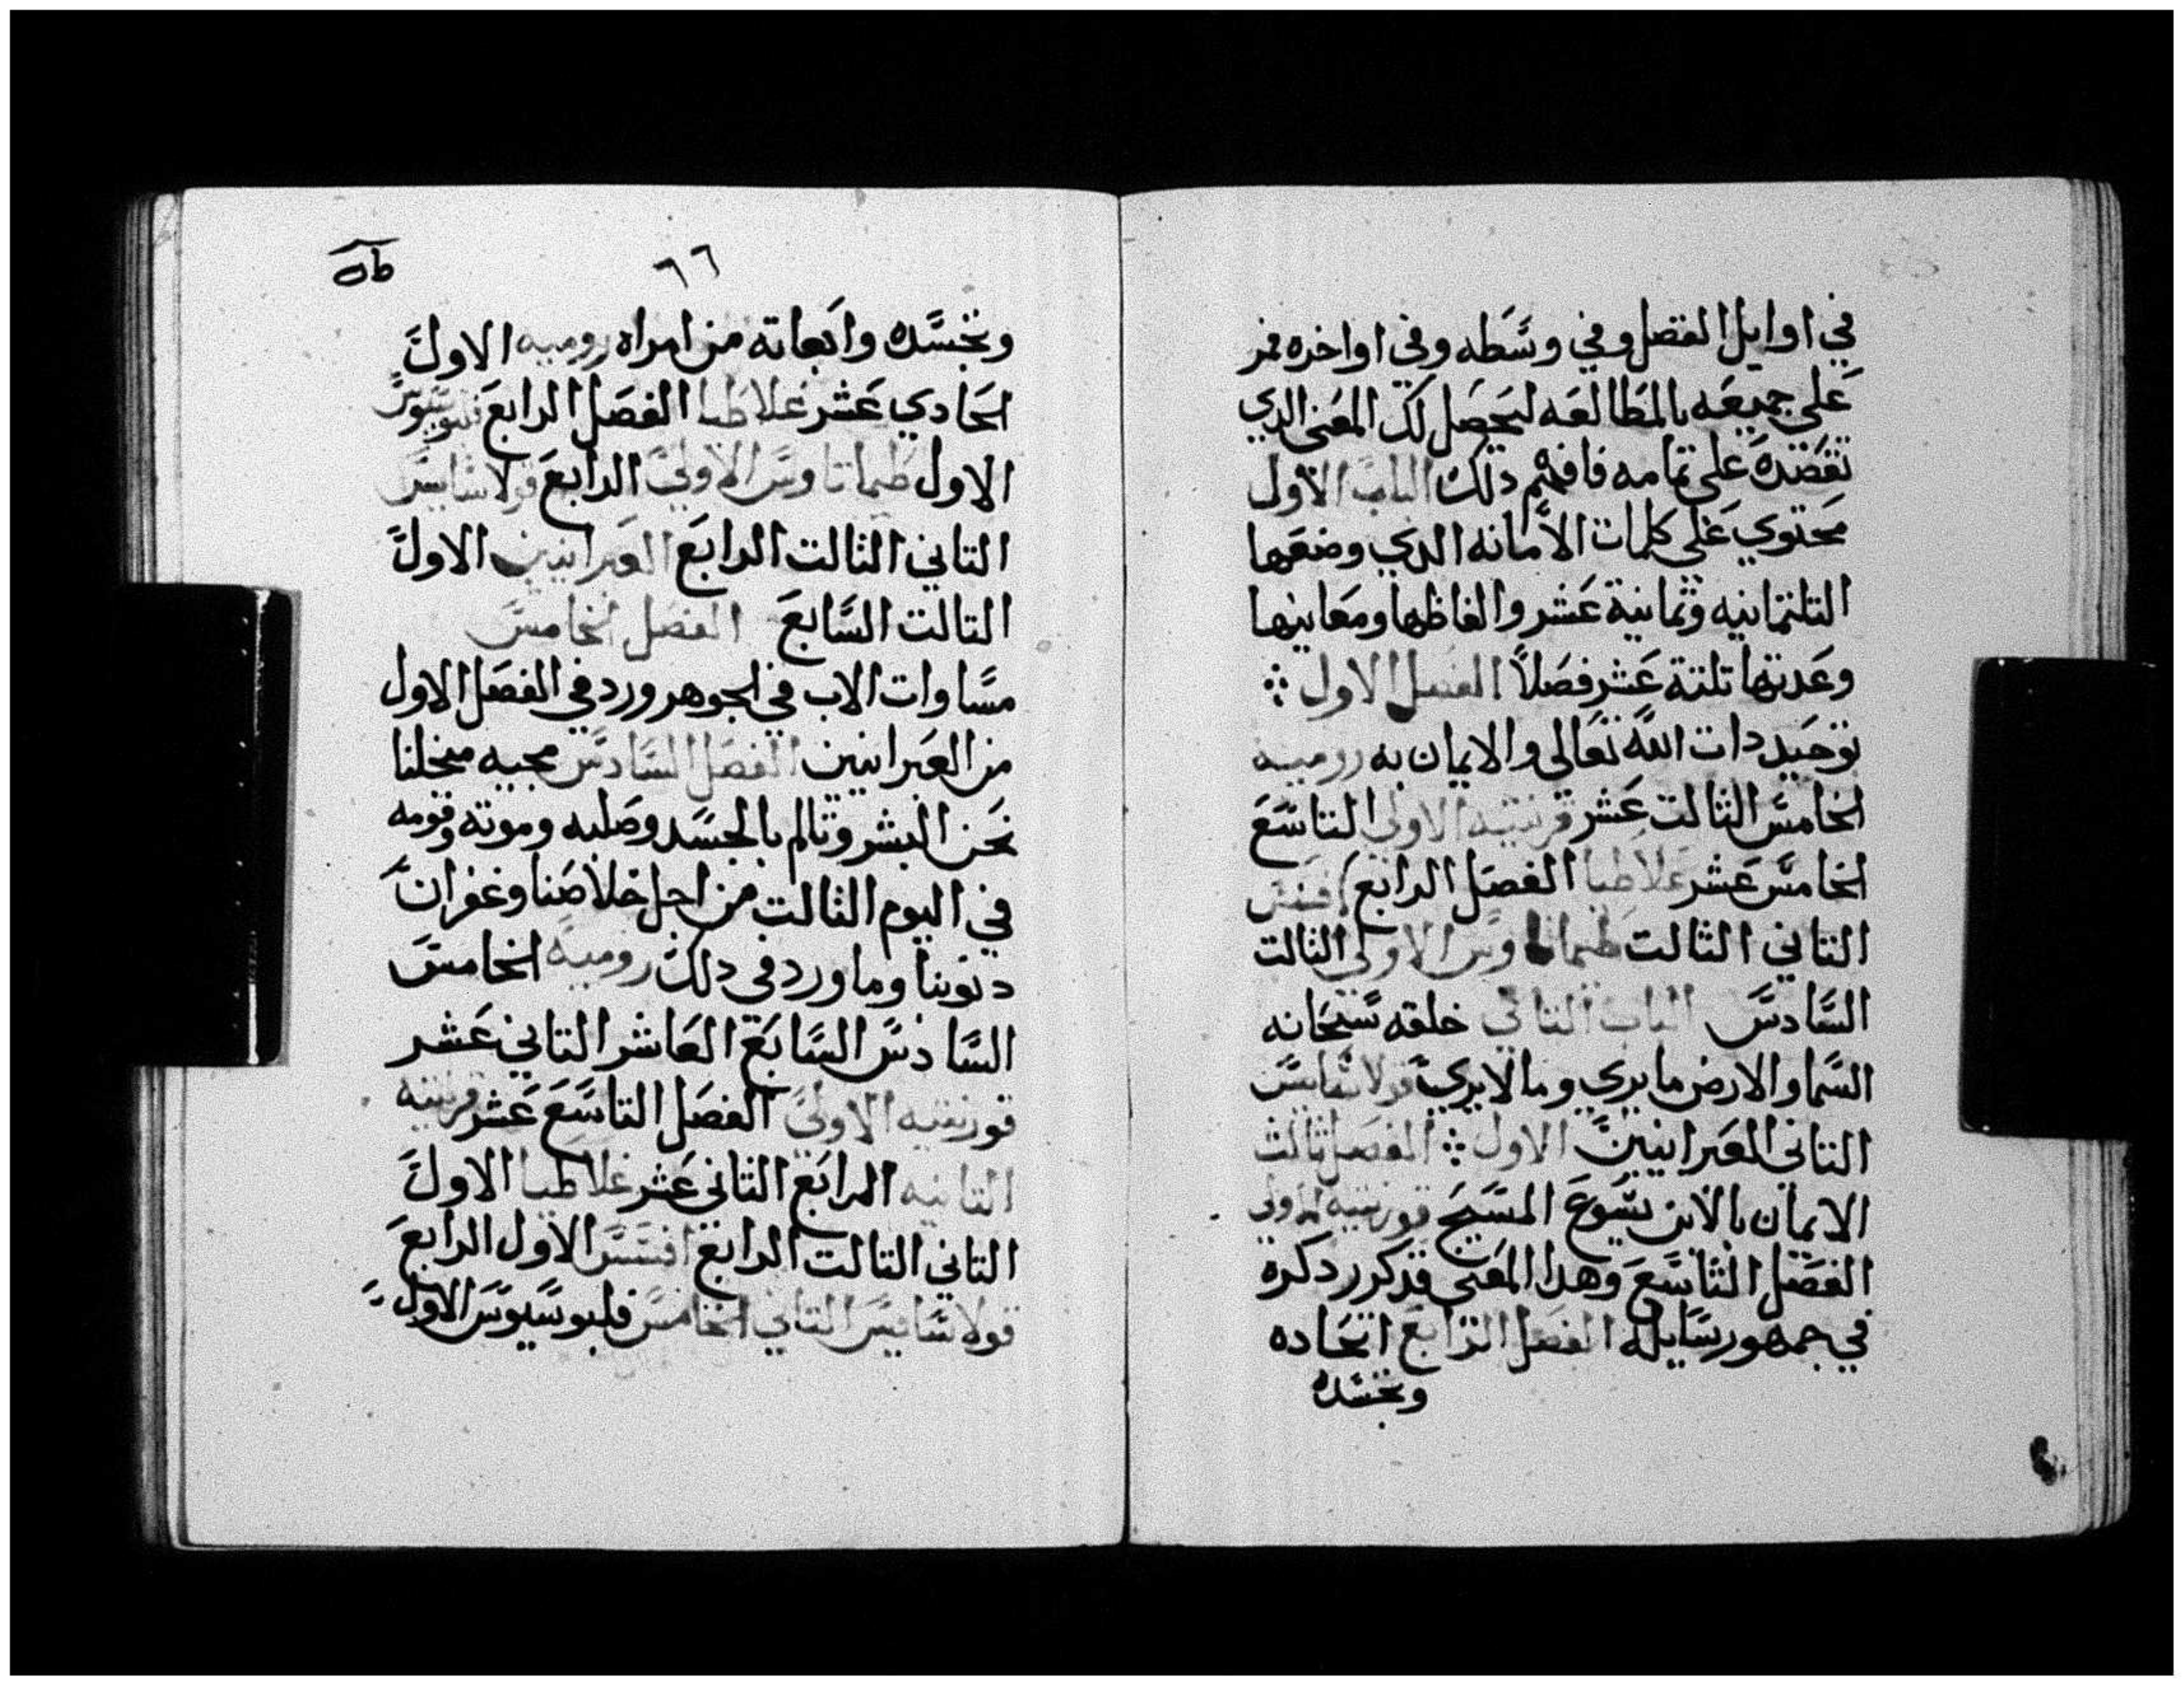 في اوايل الفصل وفي وسَطه وفي اواخره فمر
على جميعه بالمطالعه ليحصل لك المعنى الدي
تقصده على تمامه فافهم دلك الباب الاول
محتوي على كلمات الأمانه الدي وضعها
التلتمانيه وثمانية عشر والفاظها ومعانيها
وعدتها تلتة عشر فصلاً الفصل الاول
توحيد دات الله تعالى والايمان به روميه
الخامس الثالت عشر قرنتيه الاولى التاسع
الخامس عشر غلاطيا الفصل الرابع افسس
التاني الثالت طيماتاوس الاولى الثالت
السادس الباب التاني خلقه سبحانه
السما والارض ما يرى وما لا يرى قولاسايس
التاني العبرانيين الاول الفصل ثالث
الايمان بالابن يسوع المسيح قورنتيه الاولى
الفصل التاسع وهدا المعنى قد كرر دكره
في جمهور رسايله الفصل الرابع اتحاده
وتجسده
٦٦
وتجسَّده وانبعاته من امراه روميه الاول
الحادي عشر غلاطيا الفصل الرابع فليبوسيوس
الاول طيماتاوس الاولى الرابع قولاسايس
التاني الثالت الرابع العبرانيين الاول
التالت السَّابع الفصل الخامس
مسَاوات الاب في الجوهر ورد في الفصل الاول
من العبرانيين الفصل السَّادس مجيه مخلنا
نحن البشر وتالم بالجسَد وصلبه وموته وقومه
في اليوم الثالت من اجل خلاصنا وغفران
دنوبنا وما ورد في دلك روميه الخامس
السَّادس السَّابع العاشر التاني عشر
قورنتيه الاولى الفصل التاسَع عشر قرنتيه
التانيه الرابع التاني عشر غلاطيا الاول
التاني التالت الرابع افسس الاول الرابع
قولاسَايس التاني الخامس فليبوسَيوس الاول